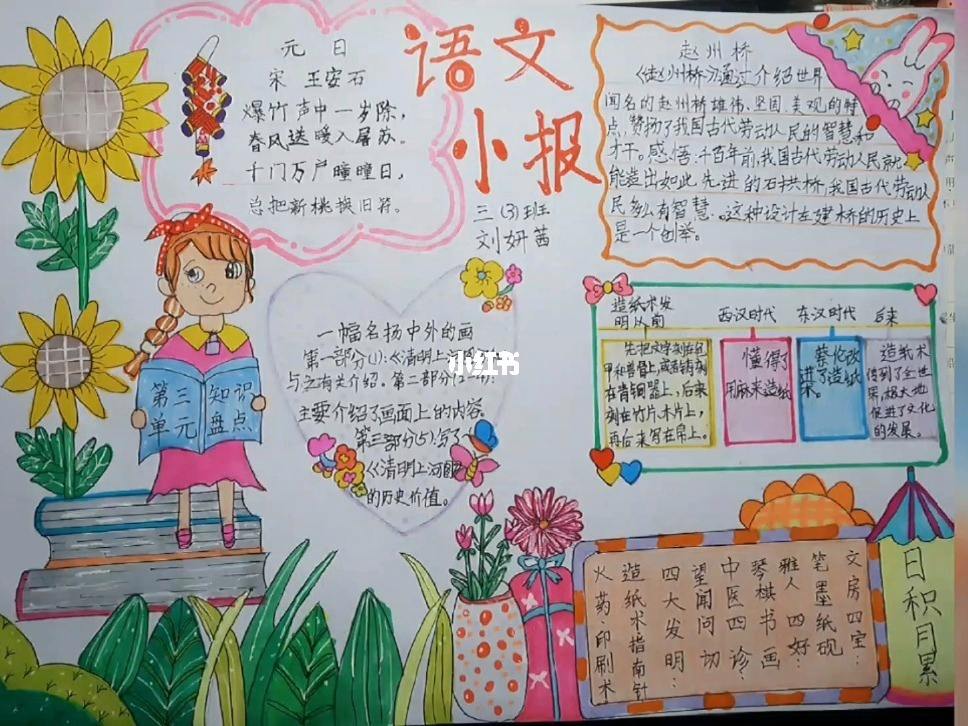 语文
小报
三(3)班
刘妍茜
元日
宋 王安石
爆竹声中一岁除,
春风送暖入屠苏.
千门万户曈曈日,
总把新桃换旧符.
赵州桥
《赵州桥》通过介绍世界
闻名的赵州桥雄伟、坚固、美观的特
点,赞扬了我国古代劳动人民的智慧和
才干。感悟:千百年前,我国古代劳动人民就
能造出如此先进的石拱桥,我国古代劳动人
民多么有智慧。这种设计在建桥的历史上
是一个创举。
第三单元
知识盘点
一幅名扬中外的画
第一部分(1):《清明上
与之有关介绍。第二部分(2-4):
主要介绍了画面上的内容。
第三部分(5),写了
《清明上河图
的历史价值。
小红书
造纸术发
明以前
西汉时代
东汉时代
后来
先把文字刻在龟
甲和兽骨上,或者铸刻
在青铜器上,后来
刻在竹片、木片上,
再后来写在帛上。
懂得了
用麻来造纸
蔡伦改
进了造纸
术。
造纸术
传到了全世
界,极大地
促进了文化
的发展。
日积月累
文房四宝:
笔墨纸砚
雅人四好:
琴棋书画
中医四诊:
望闻问切
四大发明:
造纸术指南针
火药·印刷术